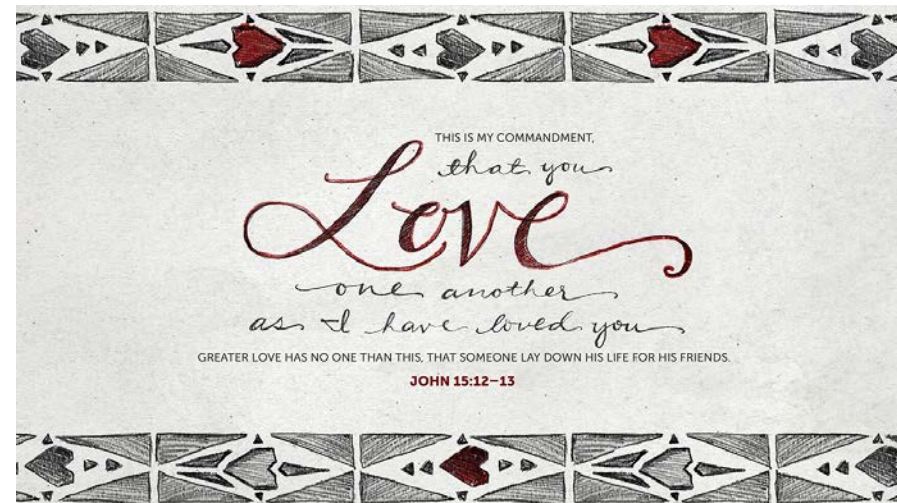 THIS IS MY COMMANDMENT,
that you
Love
one another
as I have loved you
GREATER LOVE HAS NO ONE THAN THIS, THAT SOMEONE LAY DOWN HIS LIFE FOR HIS FRIENDS.
JOHN 15:12–13